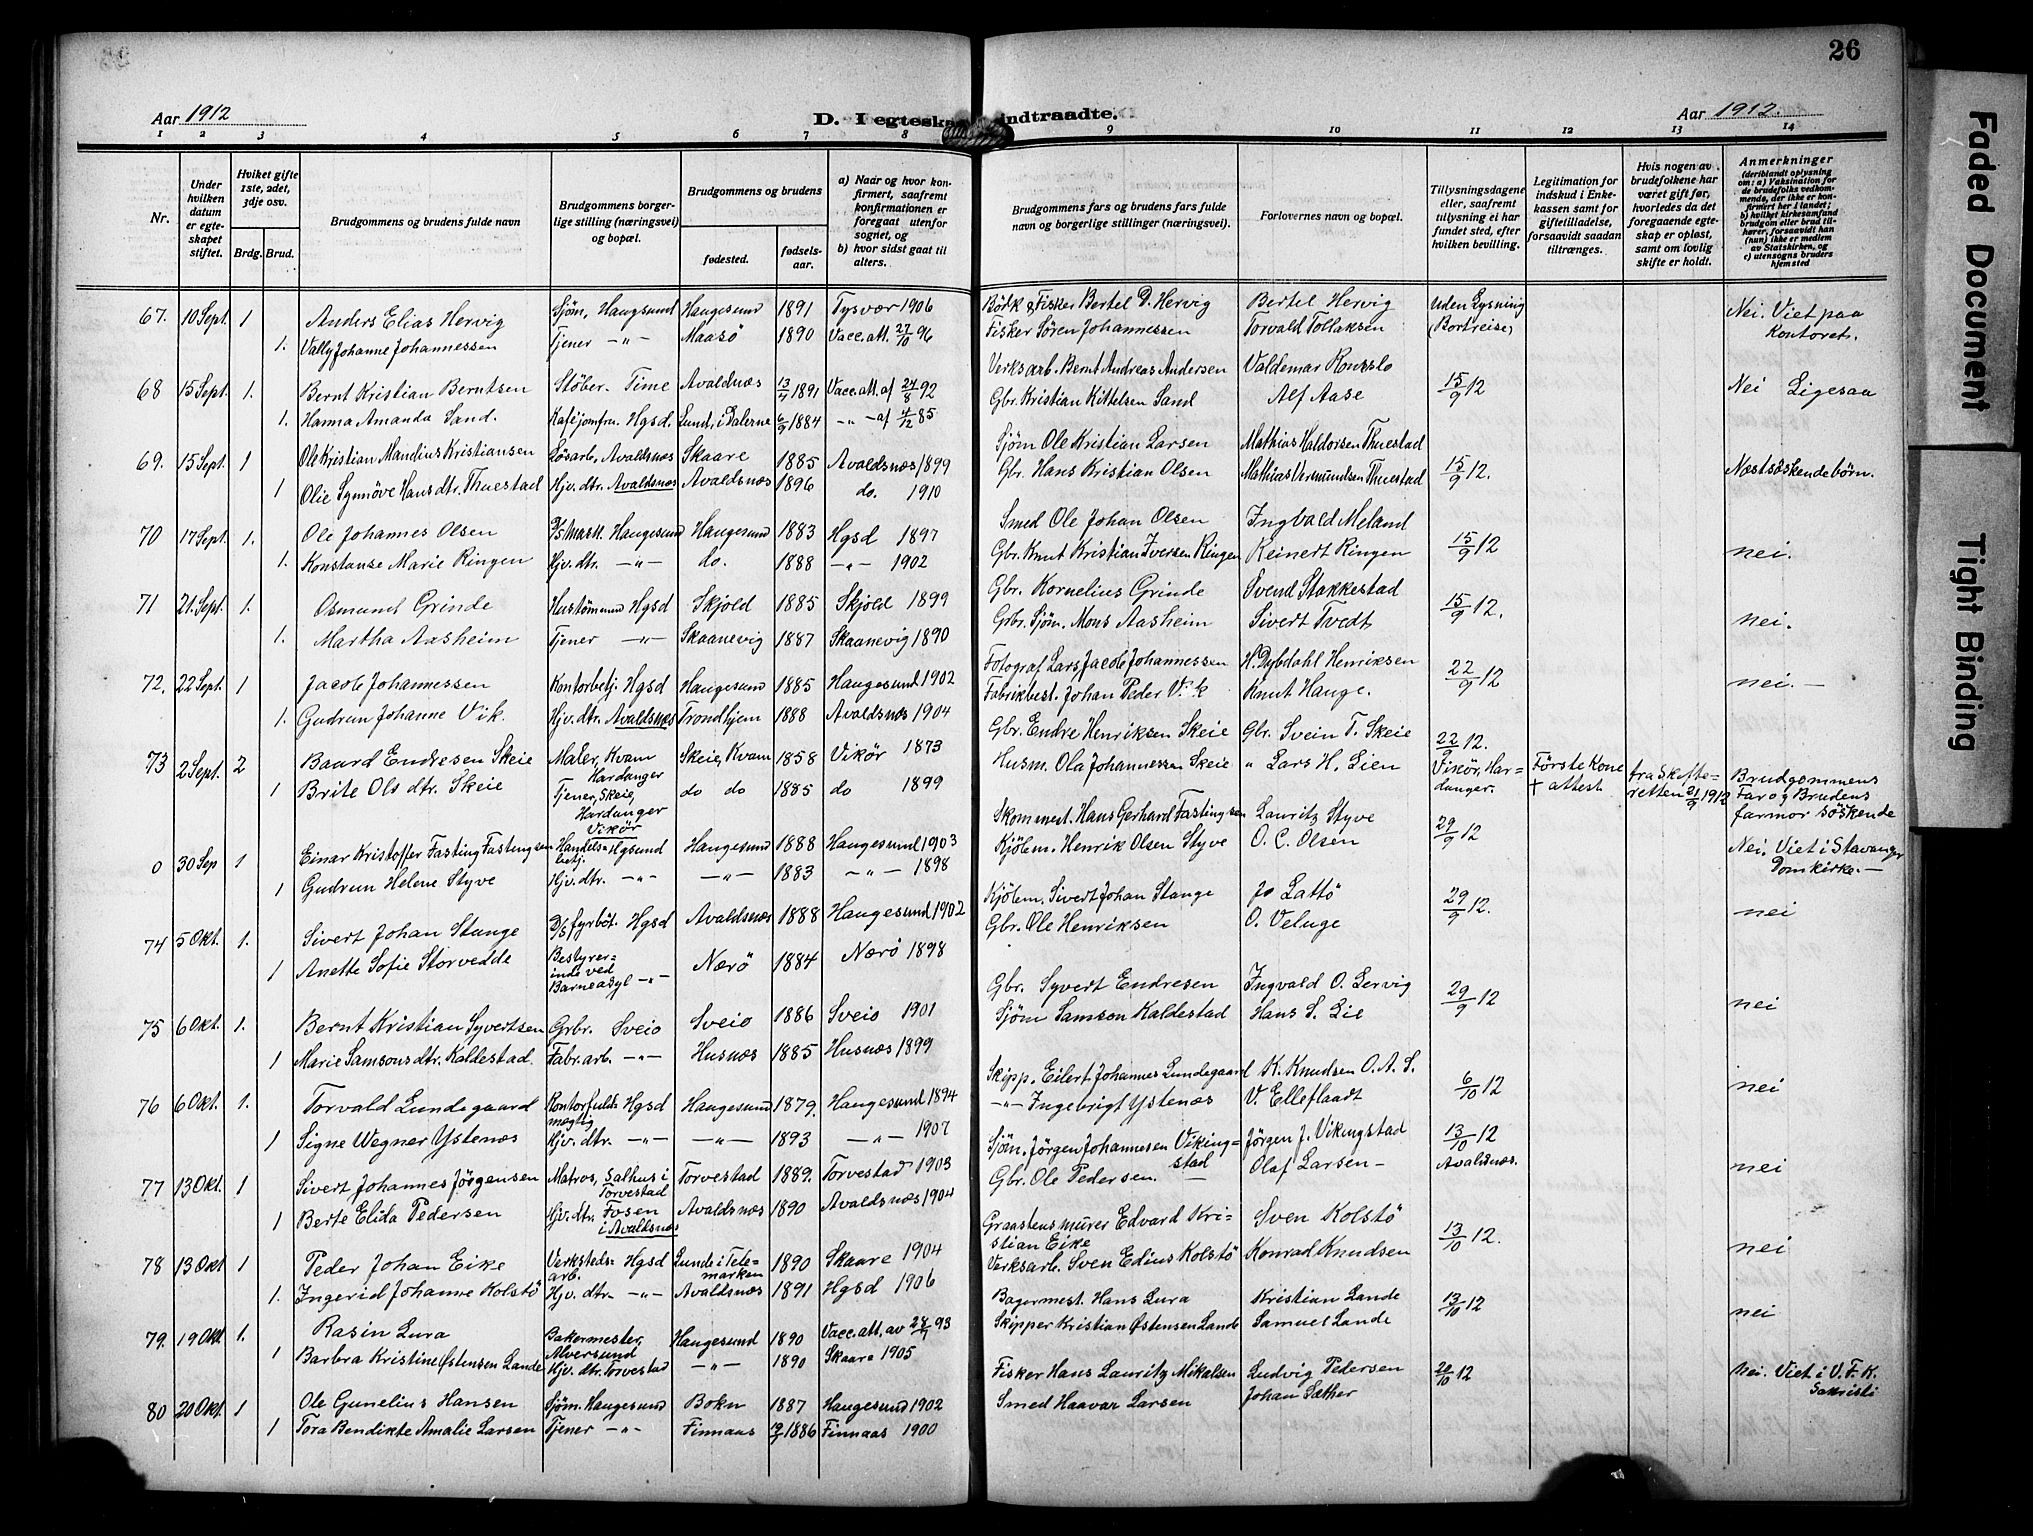 26
Aar 1912
D. I egteska
indtraadte.
Aar 1912.
1 2 3 4 5 6 7 8 9 10 11 12 13 14
Nr.
Under hvilken datum er egteskapet stiftet.
Hvilket gifte 1ste, 2det, 3dje osv.
Brdg. Brud.
Brudgommens og brudens fulde navn
Brudgommens borgerlige stilling (næringsvei) og bopæl.
Brudgommens og brudens
fødested.
fødselsaar.
a) Naar og hvor konfirmert, saafremt konfirmationen er foregaat utenfor sognet, og
b) hvor sidst gaat til alters.
Brudgommens fars og brudens fars fulde navn og borgerlige stillinger (næringsvei).
Forlovernes navn og bopæl.
Tillysningsdagene eller, saafremt tillysning ei har fundet sted, efter hvilken bevilling.
Legitimation for indskud i Enkekassen samt for giftetilladelse, forsaavidt saadan tiltrænges.
Hvis nogen av brudefolkene har været gift før, hvorledes da det foregaaende egteskap er opløst, samt om lovlig skifte er holdt.
Anmerkninger (deriblandt oplysning om: a) Vaksination for de brudefolks vedkommende, der ikke er konfirmert her i landet; b) hvilket kirkesamfund brudgom eller brud tilhører, forsaavidt han (hun) ikke er medlem av Statskirken, og c) utensogns bruders hjemsted
67. 10 Sept. 1 Anders Elias Hervig Sjøm. Haugsund Haugesund 1891 Tysvær 1906 Bødk. & Fisker Bertel D. Hervig Bertel Hervig Uden Lysning Nei. Viet paa
1. Vally Johanne Johannessen Tjener -"- Maasö 1890 Vacc. att. 27/10 96 Fisker Sören Johannessen Torvald Tollaksen (Bortreise) Kontoret.
68 15 Sept. 1. Bernt Kristian Berntsen Stöber. Time Avaldnæs 13/7 1891 Vacc. att. af 24/8 92 Verksarb. Bernt Andreas Andersen Valdemar 15/9 12 Nei Ligesaa
1. Hanna Amanda Sand. Kafejomfru. Hgsd. Lund, i Dalerne 6/9 1884 -"- af 4/12 85 Gbr. Kristian Kittelsen Sand Alf Aase
69. 15 Sept. 1 Ole Kristian Mandius Kristiansen Løsarb. Avaldsnæs Skaare 1885 Avaldsnæs 1899 Sjøm Ole Kristian Larsen Mathias Haldorsen Thuestad 15/9 12. Næstsøskendebörn.
1 Olie Synnöve Hansdtr. Thuestad Hjv. dtr. Avaldsnæs Avaldsnæs 1896 do. 1910 Gbr. Hans Kristian Olsen Mathias Vermundsen Thuestad
70 17 Sept. 1. Ole Johannes Olsen D/S Mask. Haugesund Haugesund 1883 Hgsd 1897 Smed Ole Johan Olsen Ingvald Meland 15/9 12 nei.
1. Konstanse Marie Ringen Hjv. dtr. -"- do. 1888 -"- 1902 Gbr. Knut Kristian Iversen Ringen Reinert Ringen
71 21. Sept. 1. Osmund Grinde Hustömmermd Hgsd Skjold 1885 Skjold 1899 Gbr. Kornelius Grinde Svend Stakkestad 15/9 12. nei.
1. Martha Aasheim Tjener -"- Skaanevig 1887 Skaanevig 1890 Gbr. Sjøm. Mons Aasheim Sivert Tvedt
72. 22 Sept. 1 Jacob Johannessen Kontorbetj. Hgsd Haugesund 1885 Haugesund 1902 Fotograf Lars Jacob Johannessen H. Dybdahl Henriksen 22/9 12 nei. -
1. Gudrun Johanne Vik. Hjv. dtr. Avaldsnæs Trondhjem 1888 Avaldsnæs 1904 Fabrikbest. Johan Peder Vik Knut Hauge.
73 2 Sept. 2 Baard Endresen Skeie Maler, Kvam Hardanger Skeie, Kvam 1858 Vikør 1873 Gbr. Endre Henriksen Skeie Gbr. Svein T. Skeie 22/9 12. Vikør, Hardanger. Første Kone + attest fra Skifteretten 21/9 1912 Brudgommens Far og Brudens farmor søskende
1 Brite Ols dtr. Skeie Tjener, Skeie, Hardanger Vikør do do 1885 do 1899 Husm. Ola Johannessen Skeie " Lars H. Lien
0 30 Sep 1 Einar Kristoffer Fasting Fastingsen Handelsbetj. Hgsund Haugesund 1888 Haugesund 1903 Skomment. Hans Gerhard Fastingsen Lauritz Styve 29/9 12 Nei. Viet i Stavanger Domkirke. -
1 Gudrun Helene Styve Hjv. dtr. -"- -"- 1883 -"- 1898 Kjøbm. Henrik Olsen Styve O. C. Olsen
74 5 Okt. 1. Sivert Johan Stange D/S fyrbøt. Hgsd Avaldsnæs 1888 Haugesund 1902 Kjøbm. Sivert Johan Stange Jo Lattö 29/9 12. nei
1 Anette Sofie Storvedde Bestyrerinde ved Barneasyl -"- Nærö 1884 Nærö 1898 Gbr. Ole Henriksen O. Veluge
75 6 Okt. 1. Bernt Kristian Syvertsen Grbr. Sveio Sveio 1886 Sveio 1901 Gbr. Syvert Endresen Ingvald O. Lervig 29/9 12 nei
1 Marie Samsonsdtr. Kaldestad. Fabr. arb. -"- Husnæs 1885 Husnæs 1899 Sjøm Samson Kaldestad Hans S. Lie
76 6 Okt. 1. Torvald Lundegaard Kontorfuldmægtig Hgsd Haugesund 1879. Haugesund 1894 Skipp. Eilert Johannes Lundegaard K. Knudsen O. A. S. 6/10 12 nei
1 Signe Wegner Ystenæs Hjv. dtr. -"- -"- 1893 -"- 1907 -"- Ingebrigt Ystenæs V. Elleflaadt
77 13 Okt. 1 Sivert Johannes Jörgensen Matros, Salhus i Torvestad Torvestad 1889. Torvestad 1903 Sjøm. Jørgen Johannesen Vikingstad Jørgen J. Vikingstad 13/10 12 Avaldsnæs. nei
1 Berte Elida Pedersen Hjv. dtr. Fosen i Avaldsnæs Avaldsnæs 1890 Avaldsnæs 1904 Gbr. Ole Pedersen. - Olaf Larsen -
78 13 Okt 1 Peder Johan Eike Verkstedsarb. Hgsd Lunde i Telemarken 1890 Skaare 1904 Graastensmurer Edvard Kristian Eike Sven Kolstö 13/10 12. nei
1. Ingerid Johanne Kolstö Hjv. dtr. -"- Avaldsnæs 1891 Hgsd 1906 Verksarb. Sven Edius Kolstö Konrad Knudsen
79. 19 Okt 1. Rasin Lura Bakermester, Alversund Haugesund 1890 Vacc. att. av 24/7 93 Bagermest. Hans Lura Kristian Lande 13/10 12 nei
1 Barbra Kristine Østensen Lande Hjv. dtr. Torvestad -"- 1890 Skaare 1905 Skipper Kristian Østensen Lande Samuel Lande
80 20 Okt. 1 Ole Gunelius Hansen Sjøm. Haugesund Bokn 1887 Haugesund 1902 Fisker Hans Lauritz Mikalsen Ludvig Pedersen 20/10 12 nei. Viet i V. F. K. Sakristi
1 Tora Bendikte Amalie Larsen Tjener -"- Finnaas 1886 Finnaas 1900 Smed Haavar Larsen Johan Sæther
Faded Document
Tight Binding